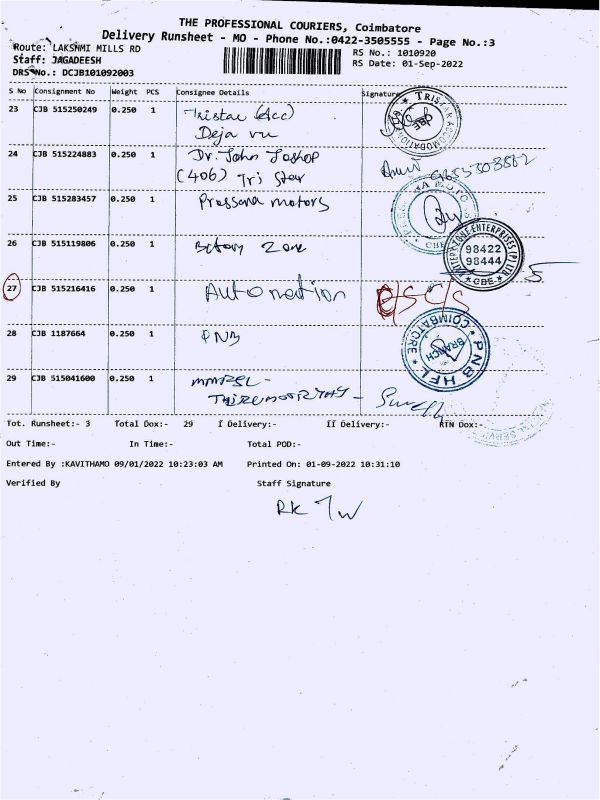 THE PROFESSIONAL COURIERS, Coimbatore
Delivery Runsheet - MO - Phone No.:0422-3505555 - Page No.:3
Route: LAKSHMI MILLS RD
RS No.: 1010920
Staff: JAGADEESH
RS Date: 01-Sep-2022
DRS No.: DCJB101092003
S No Consignment No Weight PCS Consignee Details Signature
23 CJB 515250249 0.250 1 Tristar (Acc)
Deja vu
TRISTAR ACCOMODATION
CBE
24 CJB 515224883 0.250 1 Dr. John
(406) Tri Star
25 CJB 515283457 0.250 1 Prassana motors
CBE
26 CJB 515119806 0.250 1 Battery Zone
ENTERPRISES (P) LTD
98422
98444
CBE
27 CJB 515216416 0.250 1 Automation
28 CJB 1187664 0.250 1 PNB
PNB HFL
COIMBATORE
BRANCH
29 CJB 515041600 0.250 1
Tot. Runsheet:- 3 Total Dox:- 29 I Delivery:- II Delivery:- RTN Dox:-
Out Time:- In Time:- Total POD:-
Entered By :KAVITHAMO 09/01/2022 10:23:03 AM Printed On: 01-09-2022 10:31:10
Verified By Staff Signature
RK